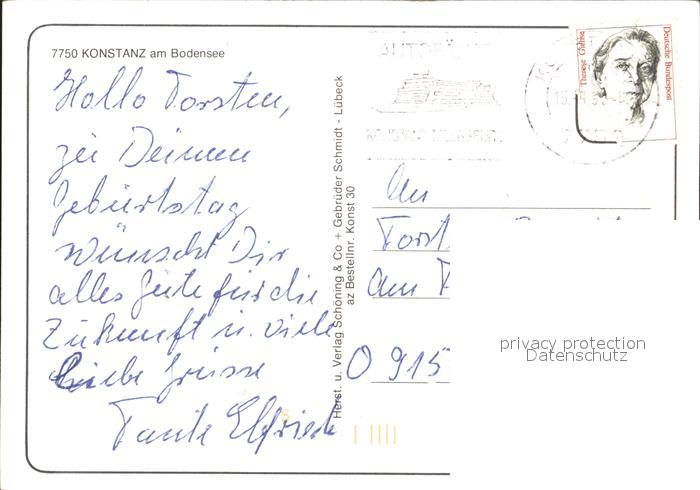 7750 KONSTANZ am Bodensee
Hallo Torsten,
zu Deinem
Geburtstag
wünscht Dir
alles Gute für die
Zukunft u. viele
liebe Grüsse
Tante Elfriede
Herst. u. Verlag Schöning & Co + Gebrüder Schmidt - Lübeck
az Bestellnr. Konst 30
Therese Giehse
Deutsche Bundespost
An
Torst
Am
O 915
privacy protection
Datenschutz